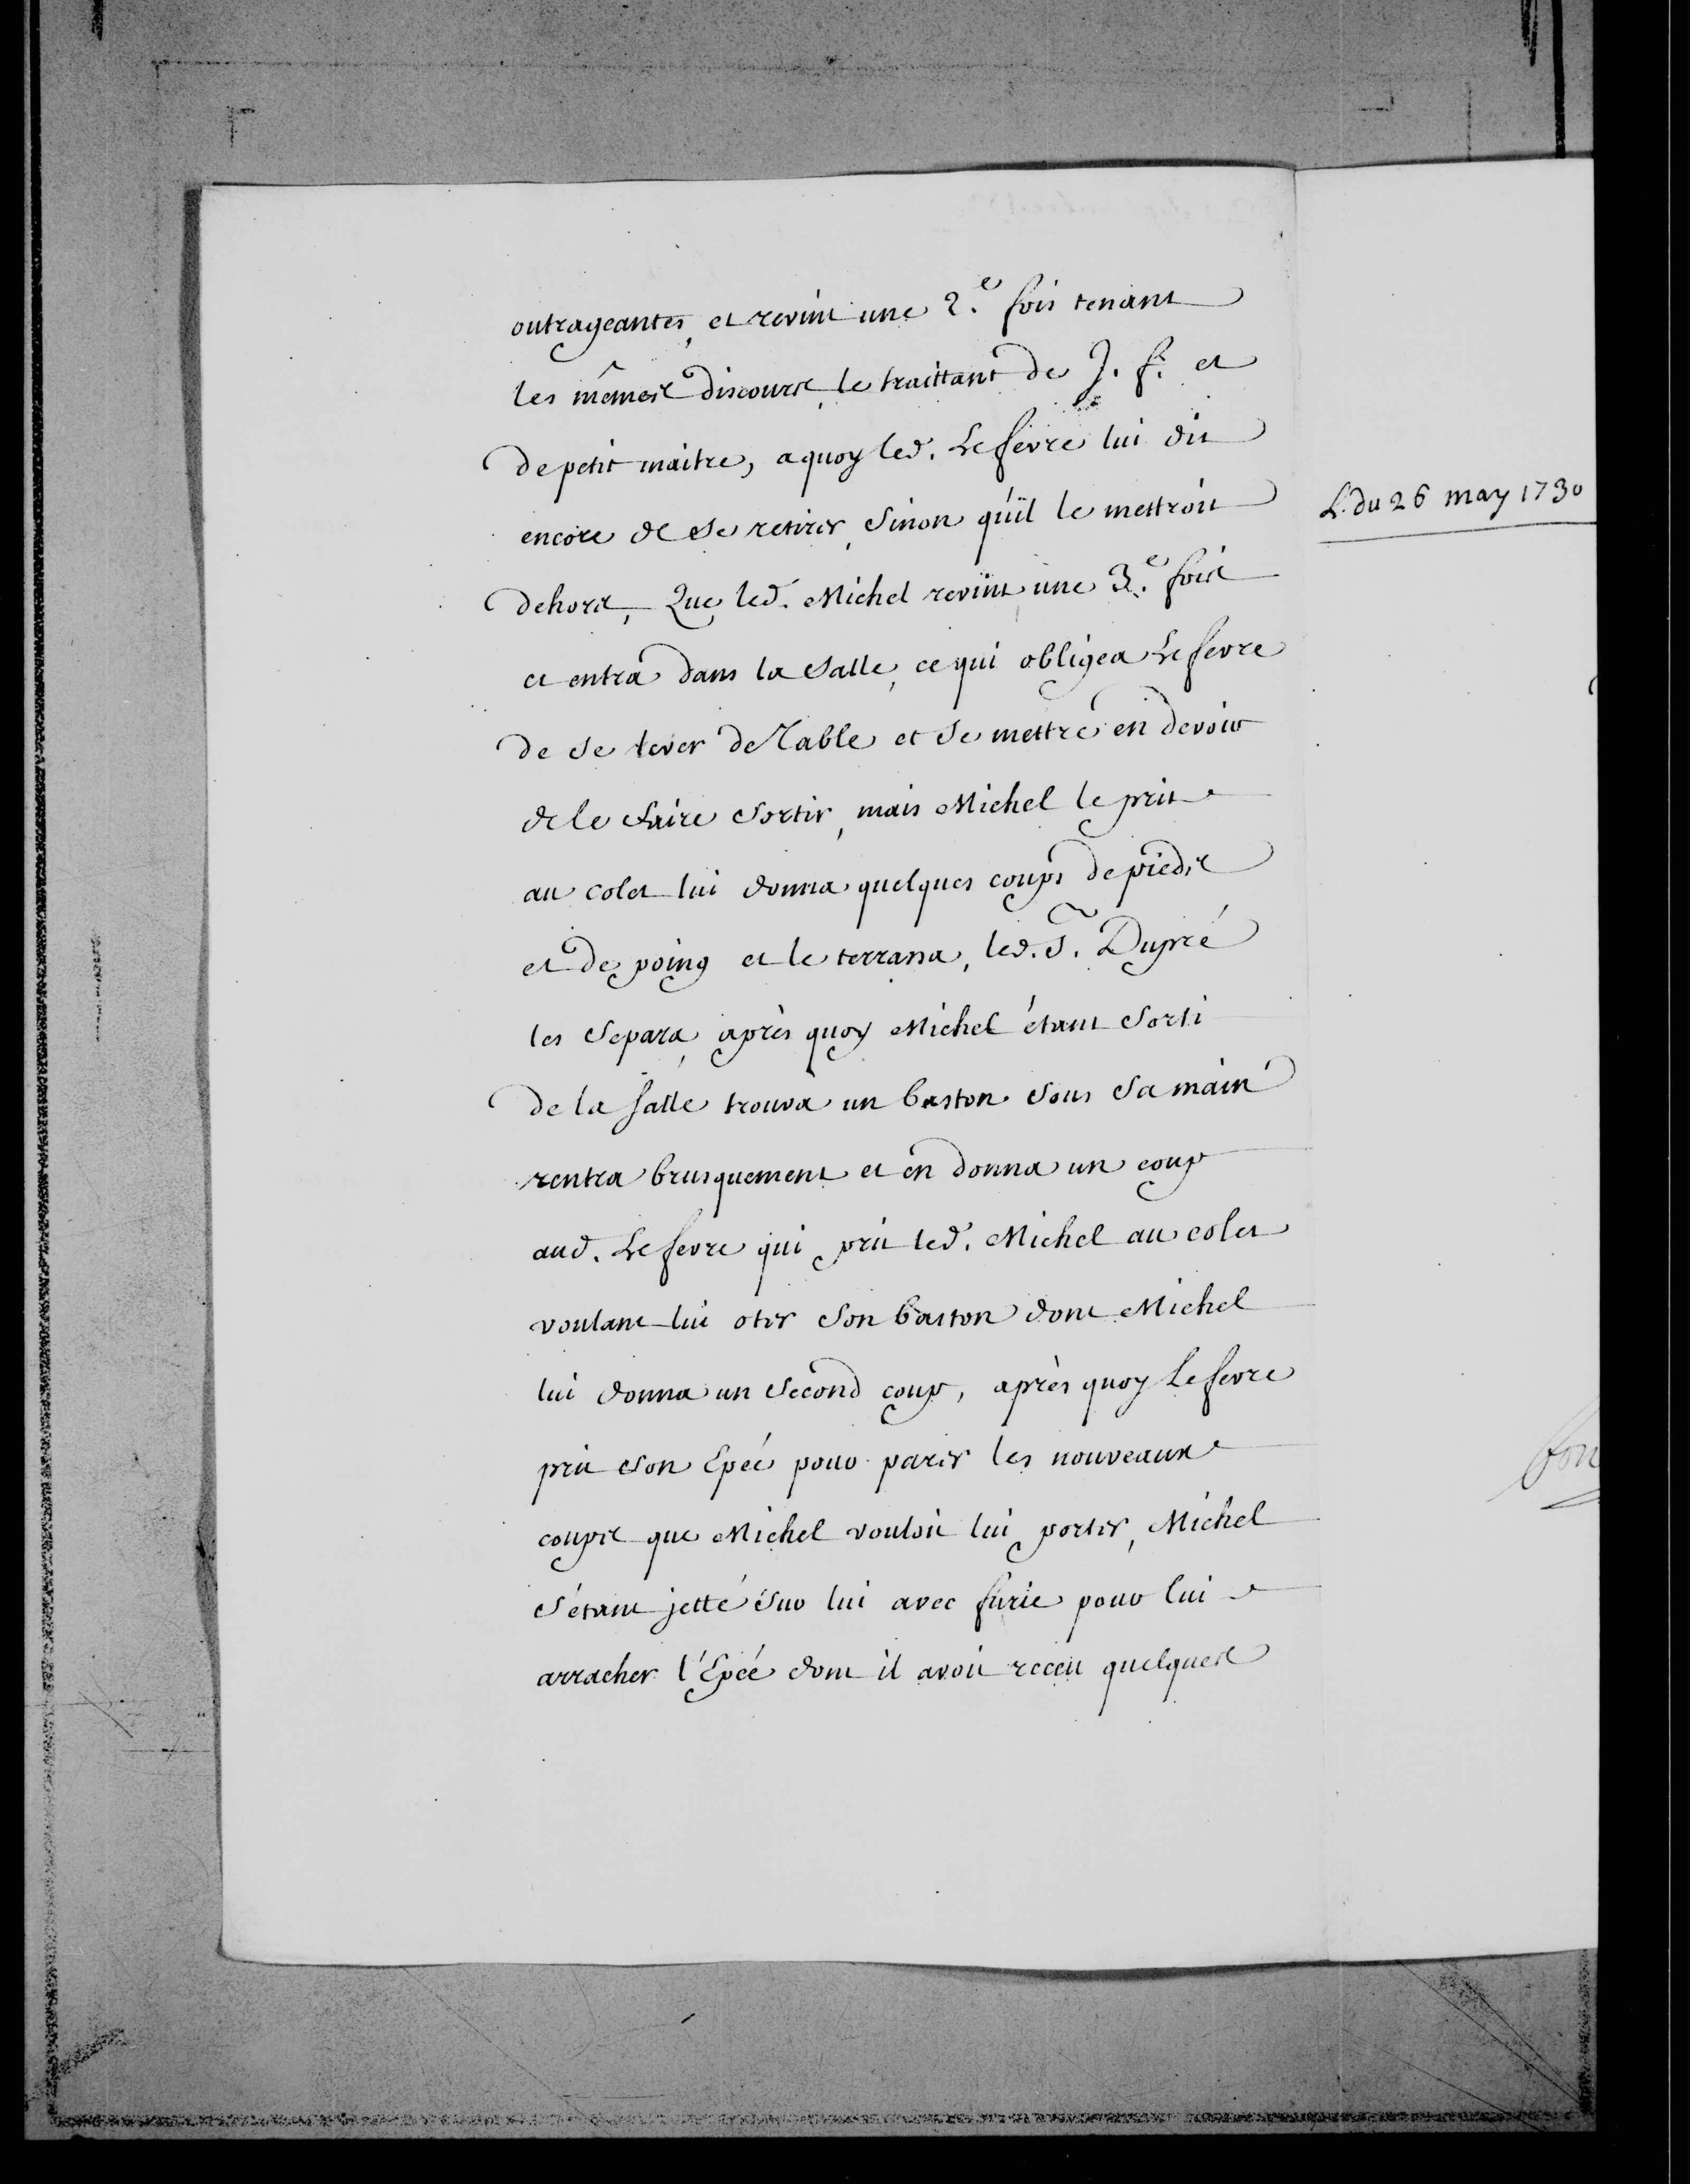 outrageantes, et revint une 2.e fois tenant
les mêmes discours, le traittant de J. f. et
de petit maitre, a quoy led. Lefevre lui dit
encore de se retirer, sinon qu'il le mettroit
dehors, Que led. Michel revint une 3.e fois
et entra dans la salle, ce qui obligea Lefevre
de se lever de Table et se mettre en devoir
de le faire sortir, mais Michel le prit
au colet lui donna quelques coups de pieds
et de poing et le terrassa, led. S. Dupré
les separa, après quoy Michel étant sorti
de la salle trouva un baston sous sa main
rentra brusquement et en donna un coup
aud. Lefevre qui prit led. Michel au colet
voulant lui oter son baston dont Michel
lui donna un second coup, après quoy Lefevre
prit son Epée pour parer les nouveaux
coups que Michel vouloit lui porter, Michel
s'étant jetté sur lui avec furie pour lui
arracher l'Epée dont il avoit receu quelques
L. du 26 may 1730